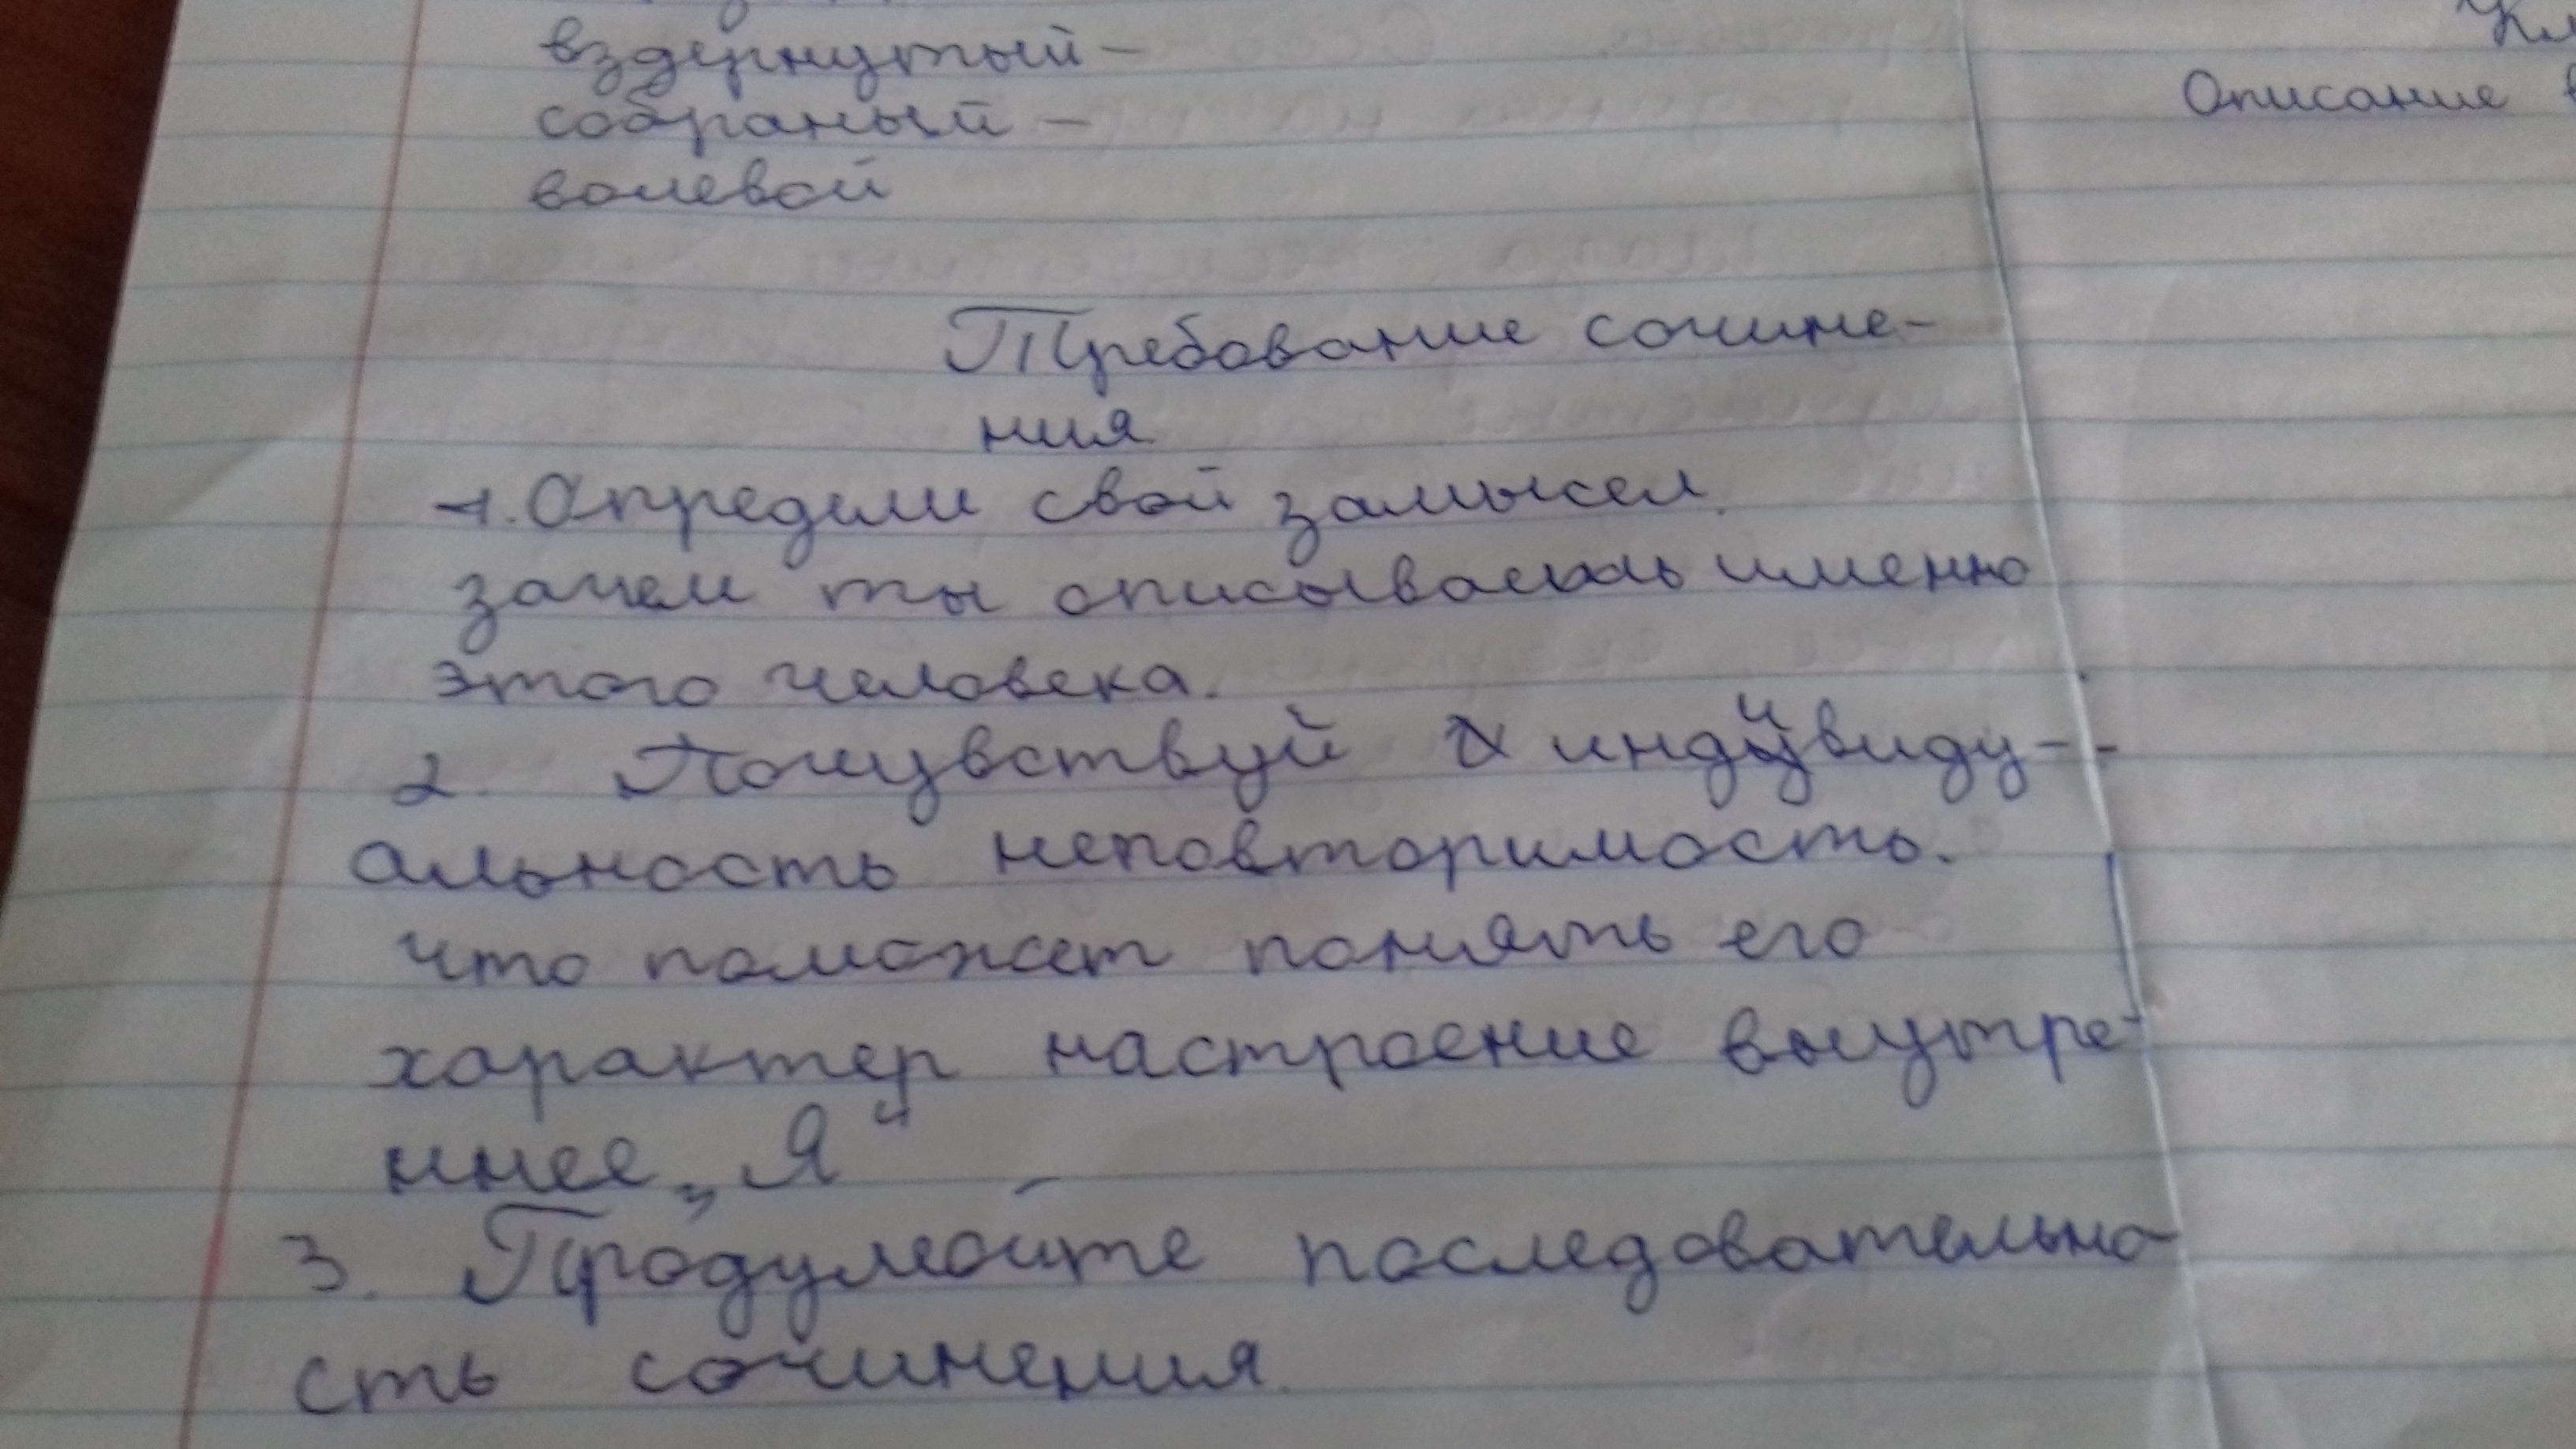 вздёрнутый –
собраный –
волевой
Требование сочине-
ния
1. Определи свой замысел.
зачем ты описываешь именно
этого человека.
2. Почувствуй индивиду-
альность неповторимость.
что поможет понять его
характер настроение внутре-
ннее „Я“
3. Продумайте последовательно-
сть сочинения.
Описание